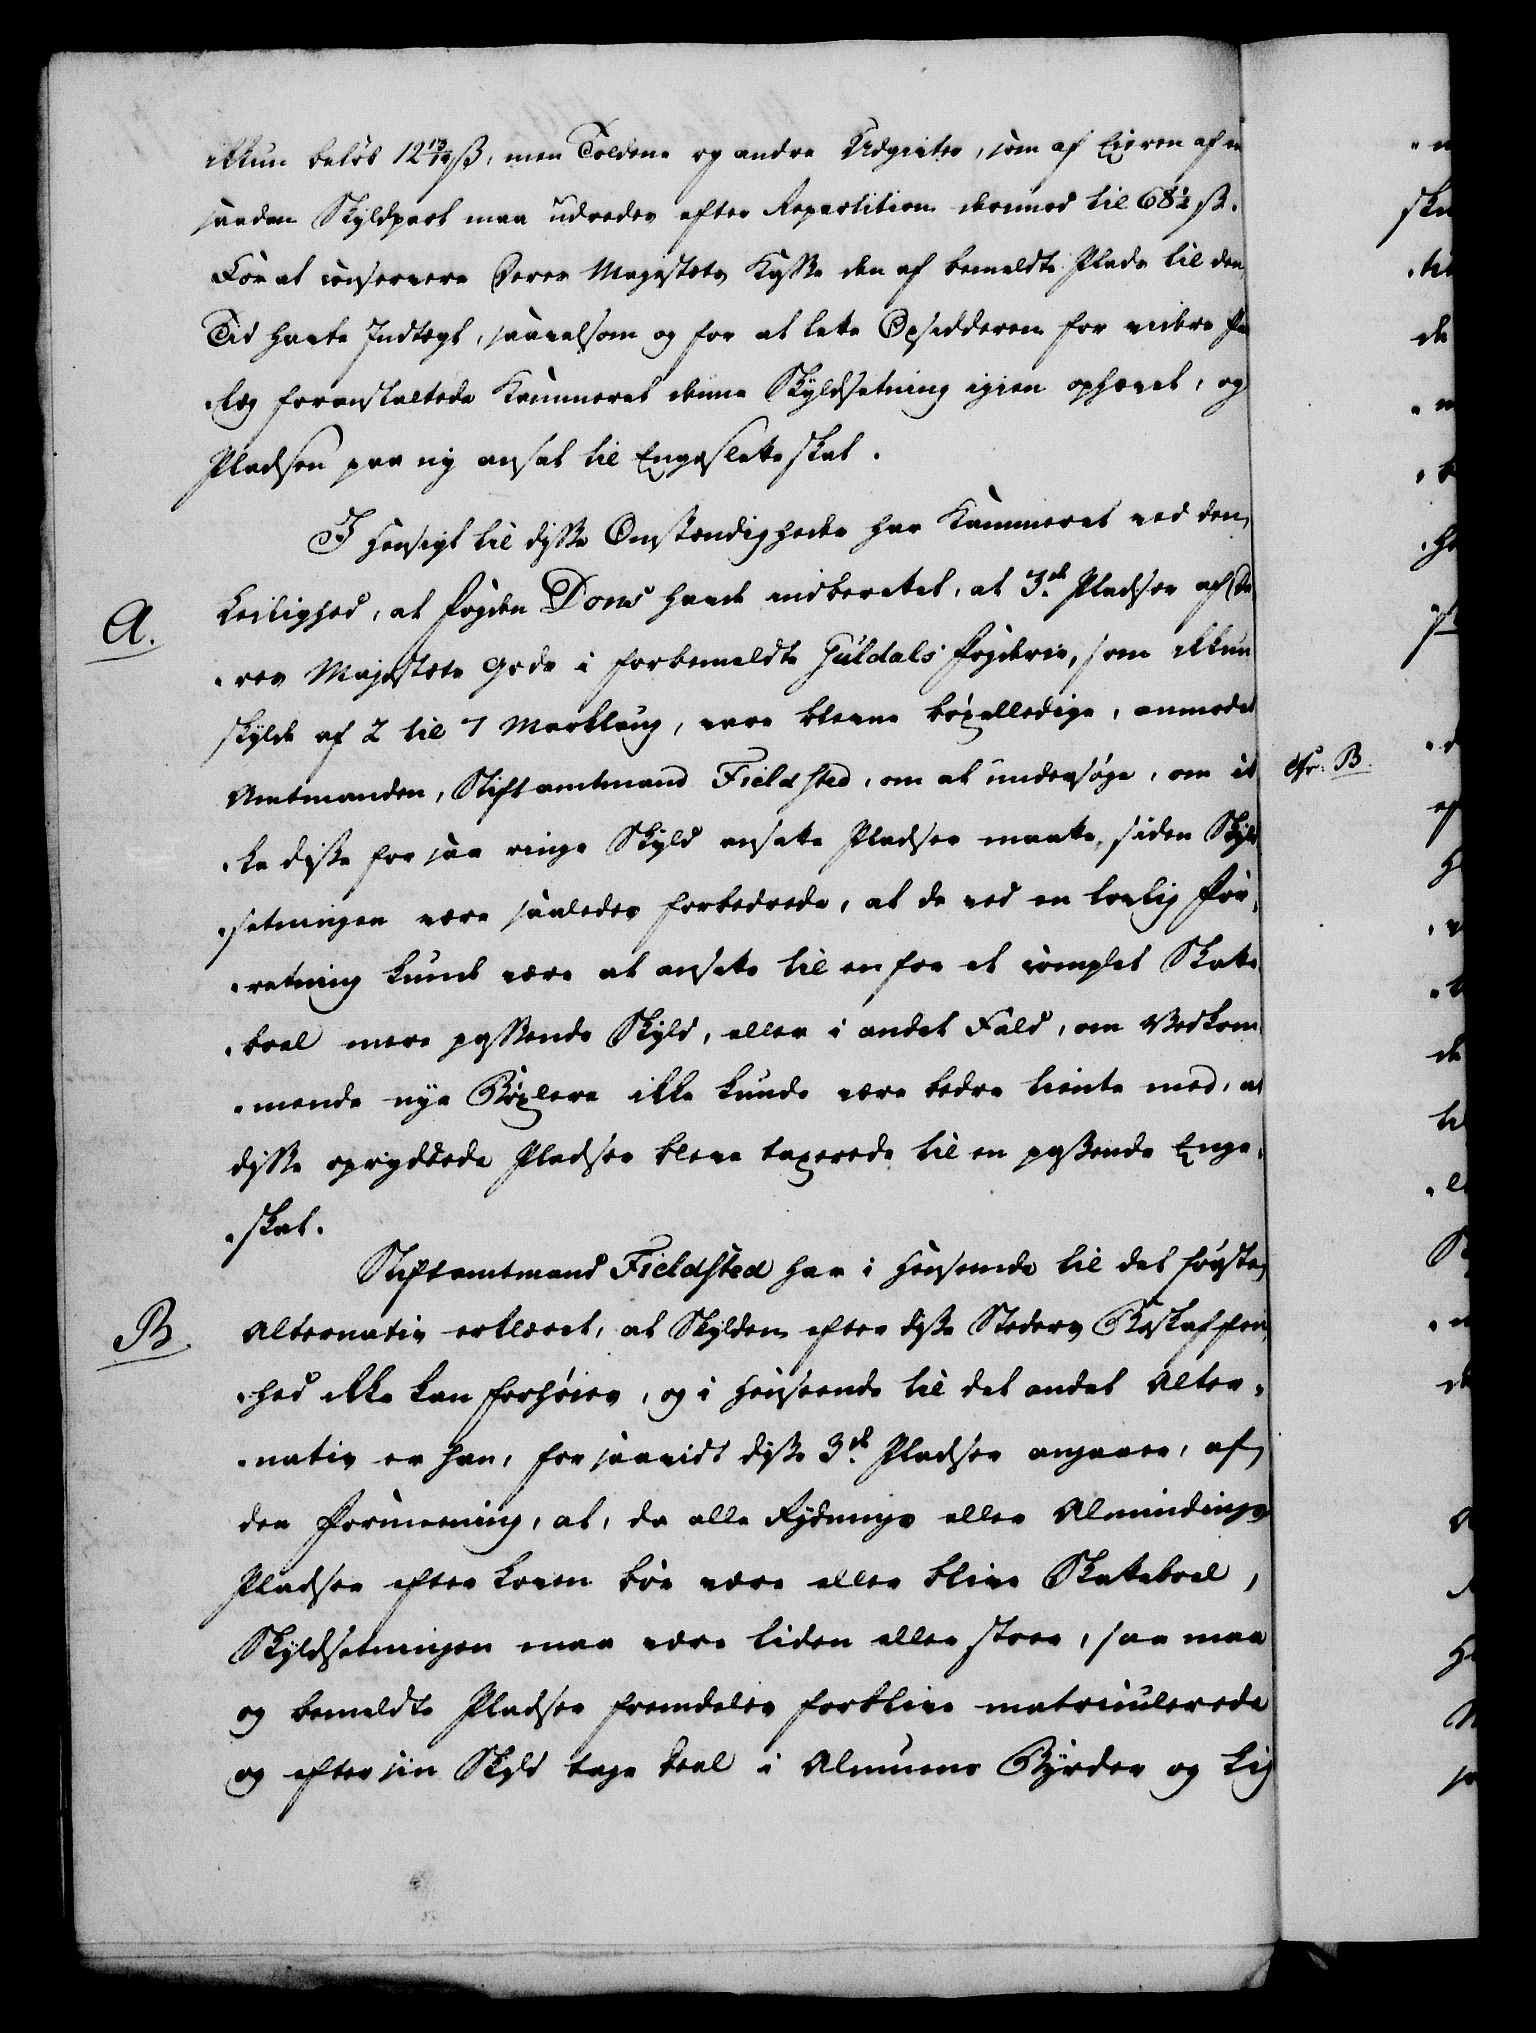 ikkun beløb 12 13/14 ß, men Toldene og andre Udgivter, som af Eieren af en
saadan Skyldpart maa udredes efter Repartition derimod til 68½ ß.
For at conservere Deres Majestæts Kasse den af bemeldte Plads til den
Tid havte Indtægt, saavelsom og for at lette Opsidderen for videre Paa
-læg foranstaltede Kammeret denne Skyldsetning igien ophævet, og
Pladsen paa ny ansat til Engesletteskat.
I Hensigt til disse Omstændigheder har Kammeret ved den
A.
Leilighed, at Fogden Dons havde indberettet, at 3de Pladser af De
-res Majestæts Gods i forbemeldte Guldals Fogderie, som ikkun
skylde af 2 til 7 Marklaug, vare blevne bøxelledige, anmodet
Amtmanden, Stiftamtmand Fieldsted, om at undersøge, om ik
cfr. B.
-ke disse for saa ringe Skyld ansatte Pladser maatte, siden Skyld
-setningen være saaledes forbedrede, at de ved en lovlig For-
-retning kunde være at ansætte til en for et complet Skatte
-boel mere passende Skyld, eller i andet Fald, om Vedkom
-mende nye Bøxlere ikke kunde være bedre tiente med, at
disse opryddede Pladser bleve taxerede til en passende Enge-
-skat.
Stiftamtmand Fieldsted har i Henseende til det første
B.
Alternativ erklæret, at Skylden efter disse Steders Beskaffen
-hed ikke kan forhøies, og i Henseende til det andet Alter-
-nativ er han, for saavidt disse 3de Pladser angaaer, af
den Formeening, at, da alle Rydnings eller Almindings
Pladser efter Loven bør være eller blive Skatteboel,
Skyldsetningen maa være liden eller stoer, saa maa
og bemeldte Pladser fremdeles forblive matriculerede
og efter sin Skyld tage Deel i Almuens Byrder og Lig